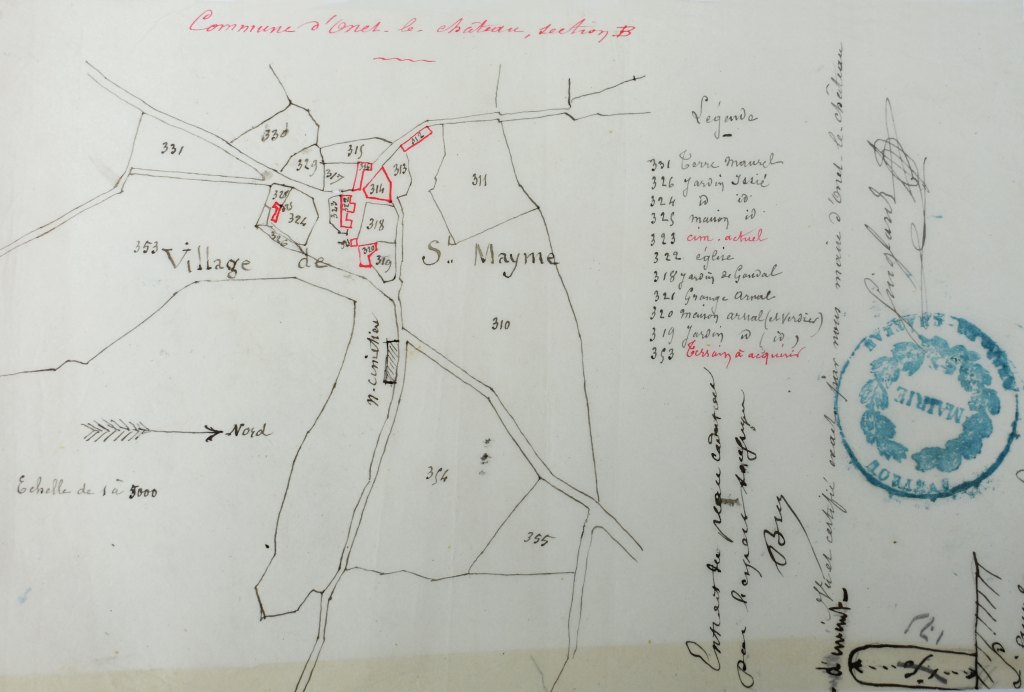 Commune d'Onet-le-château, section B
331
330
329
317
315
316
312
313
314
311
328
325
324
326
323
322
318
321
320
319
353
Village de St. Mayme
310
N. cimetière
Nord
Echelle de 1 à 5000
354
355
Légende
331 Terre Maurel
326 Jardin Issié
324 id id
325 maison id
323 cim. actuel
322 église
318 Jardin de Goudal
321 Grange Arnal
320 maison arnal (et Verdier)
319 Jardin id (id)
353 Terrain à acquérir
Extrait du plan cadastral
par
Vu et certifié exact par nous maire d'Onet-le-château
MAIRIE
AVEYRON